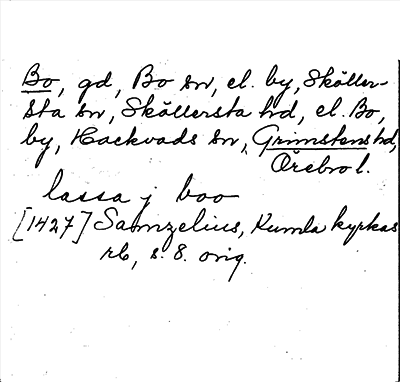 Bo, gd, Bo sn, el. by, Sköller-
sta sn, Sköllersta hd, el. Bo,
by, Hackvads sn, Grimstens hd,
Örebro l.
lassa j boo
[1427] Samzelius, Kumla kyrkas
rb, s. 8. orig.